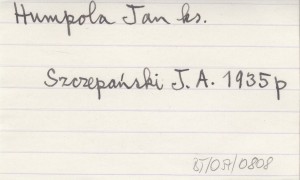 Humpola Jan ks.
Szczepański J. A. 1935 p
BJ/OA/0808